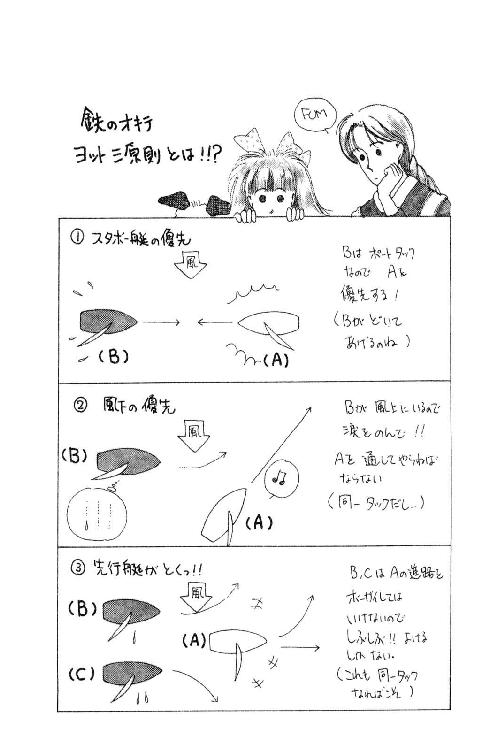 鉄のオキテ
ヨット三原則とは!!?
FUM
① スタボー艇の優先
風
(B)
(A)
Bは ポートタック
なので Aを
優先する!
(Bが どいて
あげるのね)
② 風下の優先
風
(B)
(A)
Bが 風上にいるので
涙をのんで!!
Aを 通してやらねば
ならない
(同一タックだし..)
③ 先行艇がとくっ!!
風
(B)
(A)
(C)
B,CはAの進路を
ボーガイしては
いけないので
しぶしぶ!! よける
しかない.
(これも 同一タック
なればこそ)